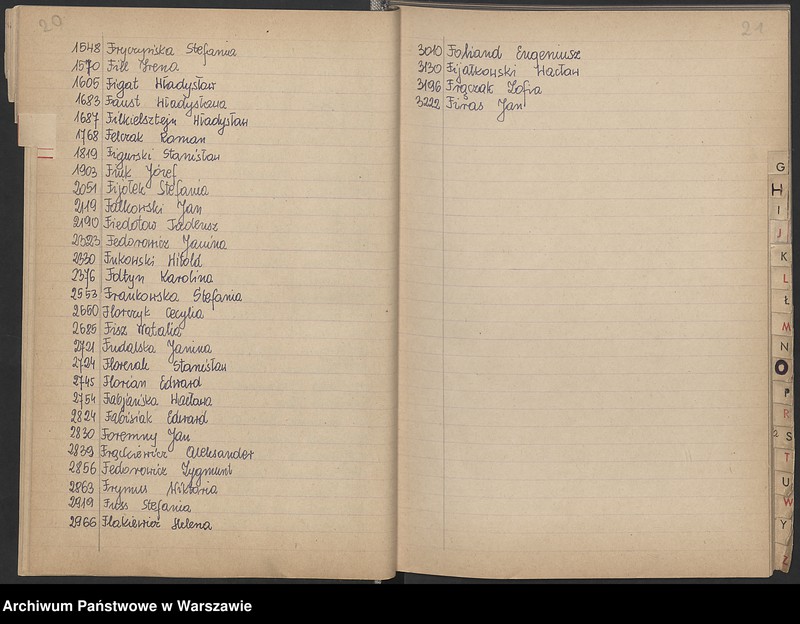 20
1548 Fryczyńska Stefania
1570 Fill Irena
1605 Figat Władysław
1683 Faust Władysława
1687 Filkielsztejn Władysław
1768 Felczak Roman
1819 Figurski Stanisław
1903 Fiuk Józef
2051 Fijołek Stefania
2119 Falkowski Jan
2190 Fiedotow Tadeusz
2323 Fedorowicz Janina
2330 Fukowski Witold
2376 Fołtyn Karolina
2553 Frankowska Stefania
2650 Florczyk Cecylia
2685 Fisz Natalia
2721 Fudalska Janina
2724 Florczak Stanisław
2745 Florian Edward
2754 Fabjańska Wacława
2824 Fabisiak Edward
2830 Foremny Jan
2839 Frąckiewicz Aleksander
2856 Fedorowicz Zygmunt
2863 Frymus Wiktoria
2919 Fuss Stefania
2966 Flakiewicz Helena
21
3010 Foliand Eugeniusz
3130 Fijałkowski Wacław
3196 Frączak Zofia
3222 Firas Jan
G
H
I
J
K
L
Ł
M
N
O
P
R
S
T
U
W
Y
Z
Archiwum Państwowe w Warszawie